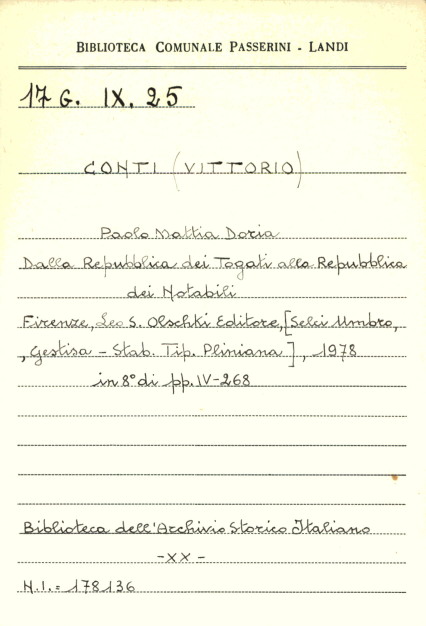 BIBLIOTECA COMUNALE PASSERINI - LANDI
17 G. IX. 25
CONTI (VITTORIO)
Paolo Mattia Doria
Dalla Repubblica dei Togati alla Repubblica
dei Notabili
Firenze, Leo S. Olschki Editore, [Selci Umbro,
, Gestisa - Stab. Tip. Pliniana], 1978
in 8° di pp. IV-268
Biblioteca dell'Archivio Storico Italiano
-XX-
N.I. = 178136